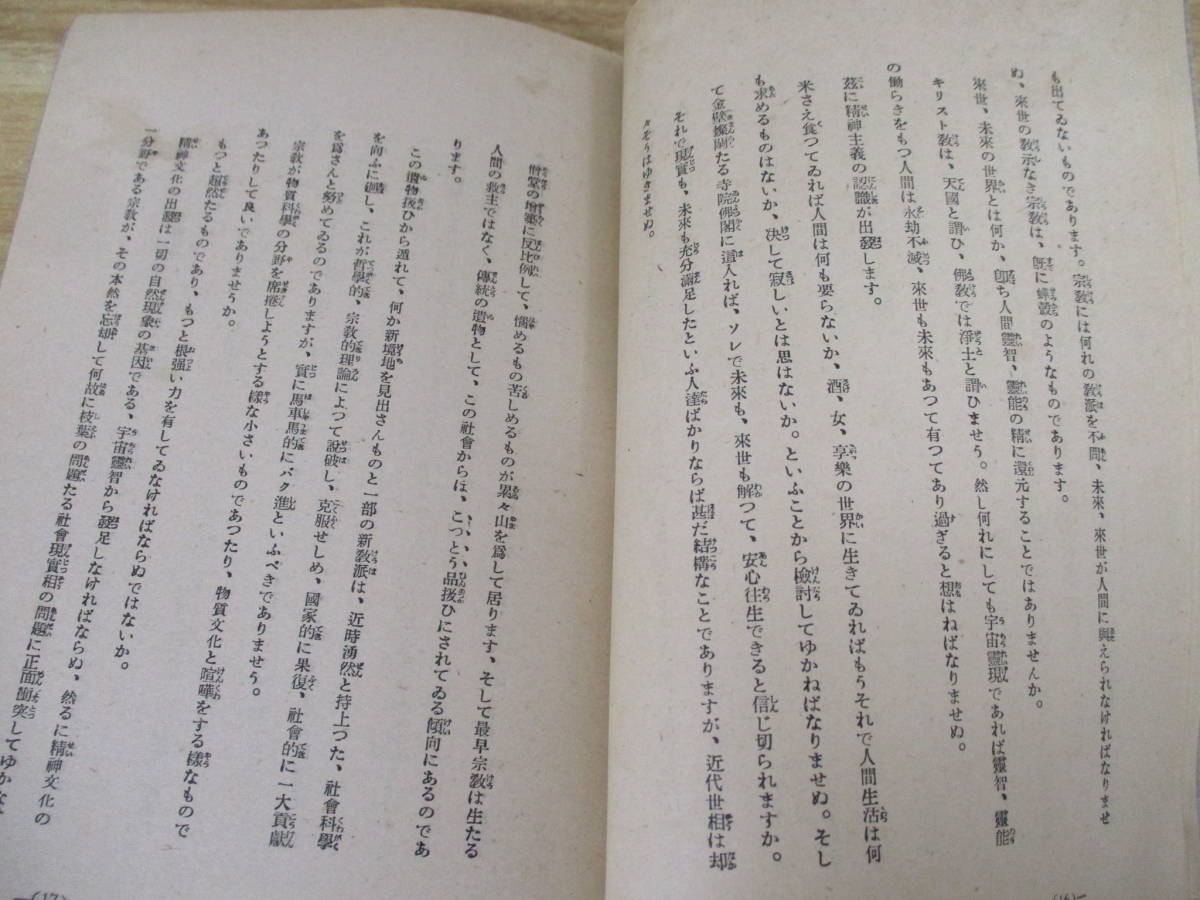 も出てゐないものであります。宗教には何れの教派を不問、未來、來世が人間に與えられなければなりませ
ぬ、來世の教示なき宗教は、既に蟬殼のようなものであります。
來世、未來の世界とは何か、卽ち人間靈智、靈能の精に還元することではありませんか。
キリスト教は、天國と謂ひ、佛教では淨土と謂ひませう。然し何れにしても宇宙靈現であれば靈智、靈能
の働らきをもつ人間は永劫不滅、來世も未來もあつて有つてあり過ぎると想はねばなりませぬ。
茲に精神主義の認識が出發します。
米さえ食つてゐれば人間は何も要らないか、酒、女、享樂の世界に生きてゐればもうそれで人間生活は何
も求めるものはないか、决して寂しいとは思はないか。といふことから檢討してゆかねばなりませぬ。そし
て金壁燦爛たる寺院佛閣に這入れば、ソレで未來も、來世も解つて、安心往生できると信じ切られますか。
それで現實も、未來も充分滿足したといふ人達ばかりならば甚だ結構なことでありますが、近代世相は却
々そうはゆきませぬ。
(16)
僧堂の增築に反比例して、惱めるもの苦しめるものが累々山を爲して居ります、そして最早宗教は生たる
人間の救主ではなく、傳統の遺物として、この社會からは、、、、こつとう品扱ひにされてゐる傾向にあるのであ
ります。
この遺物扱ひから遁れて、何か新境地を見出さんものと一部の新教派は、近時湧然と持上つた、社會科學
を向ふに廻し、これが哲學的、宗教的理論によつて說破し、克服せしめ、國家的に果復、社會的に一大貢獻
を爲さんと努めてゐるのでありますが、實に馬車馬的にバク進といふべきでありませう。
宗教が物質科學の分野を席捲しようとする樣な小さいものであつたり、物質文化と喧嘩をする樣なもので
あつたりして良いでありませうか。
もつと超然たるものであり、もつと根强い力を有してゐなければならぬではないか。
精神文化の出發は一切の自然現象の基因である、宇宙靈智から發足しなければならぬ、然るに精神文化の
一分野である宗教が、その本然を忘却して何故に枝葉の問題たる社會現實相の問題に正面衝突してゆかな
(17)